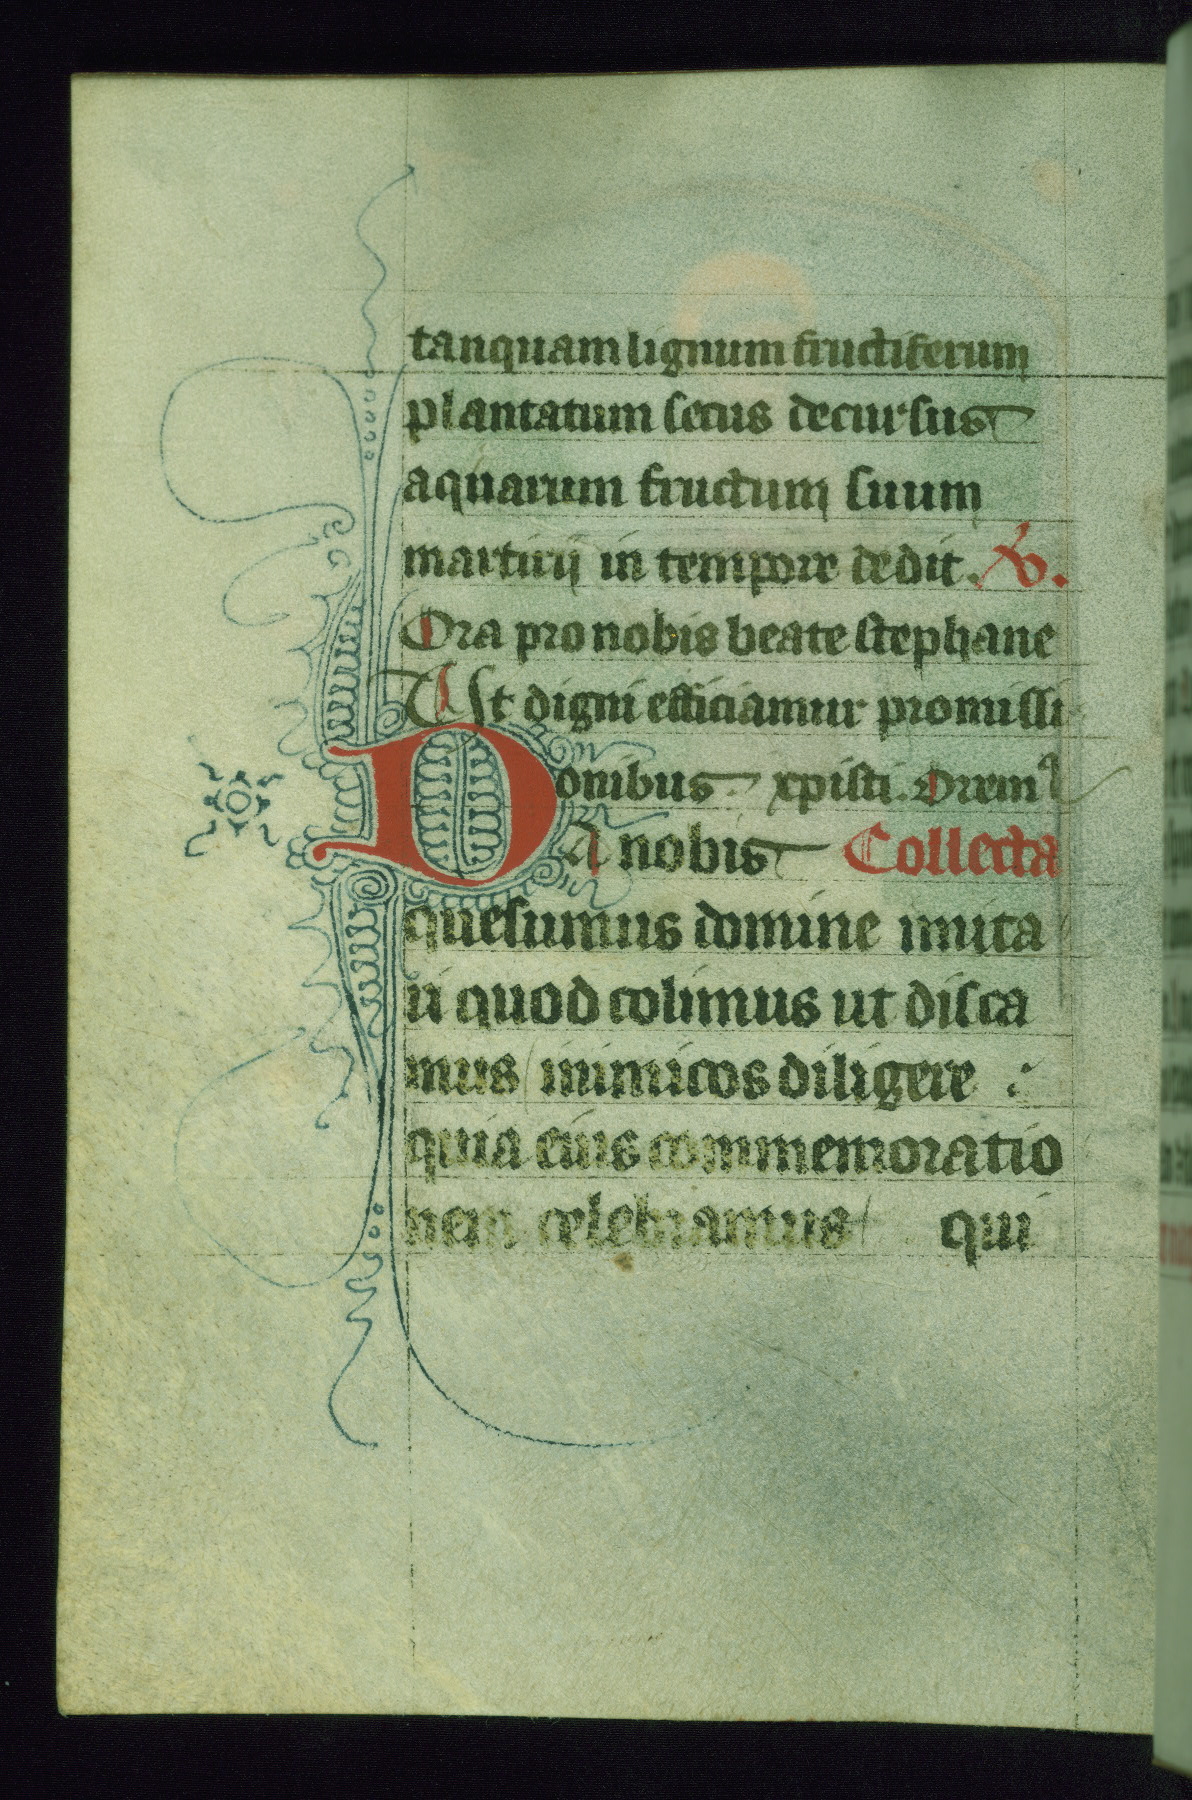 tanquam lignum fructiferum
plantatum secus decursus
aquarum fructum suum
martirij in tempore dedit. V.
Ora pro nobis beate stephane
Ut digni efficiamur promissi
onibus xpisti. Oremus
DA nobis Collecta
quesumus domine imita
ri quod colimus ut disca
mus inimicos diligere :
quia eius commemoratio
nem celebramus qui